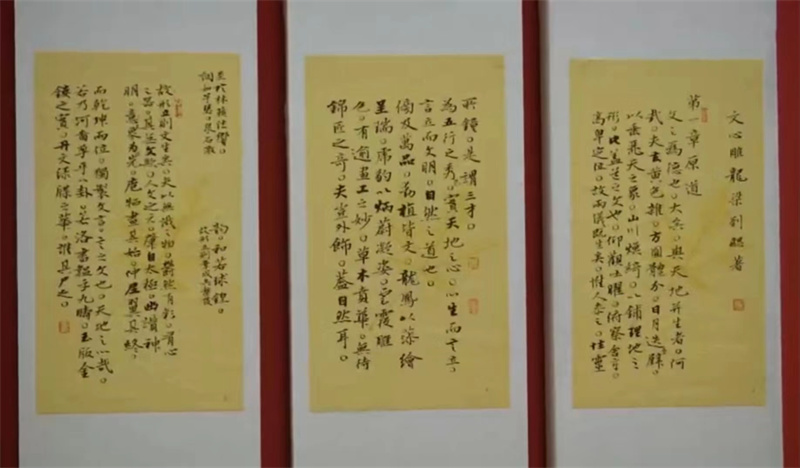 文心雕龍 梁劉勰著
第一章 原道
文之為德也。大矣。與天地并生者。何
哉。夫玄黃色雜。方圓體分。日月迭璧。
以垂麗天之象。山川煥綺。以鋪理地之
形。此蓋道之文也。仰觀吐曜。俯察含章。
高卑定位。故兩儀既生矣。惟人參之。性靈
所鍾。是謂三才。
為五行之秀。實天地之心。心生而言立。
言立而文明。自然之道也。
傍及萬品。動植皆文。龍鳳以藻繪
呈瑞。虎豹以炳蔚凝姿。雲霞雕
色。有逾畫工之妙。草木賁華。無待
錦匠之奇。夫豈外飾。蓋自然耳。
至於林籟結響。
調如竽瑟。泉石激
韵。和若球鍠。
故形立則章成矣聲發
故形立則文生矣。夫以無識之物。鬱然有彩。有心
之器。其無文歟。人文之元。肇自太極。幽讚神
明。易象為先。庖犧畫其始。仲尼翼其終。
而乾坤兩位。獨制文言。言之文也。天地之心哉。
若乃河圖孕乎八卦。洛書韞乎九疇。玉版金
鏤之實。丹文綠牒之華。誰其尸之。